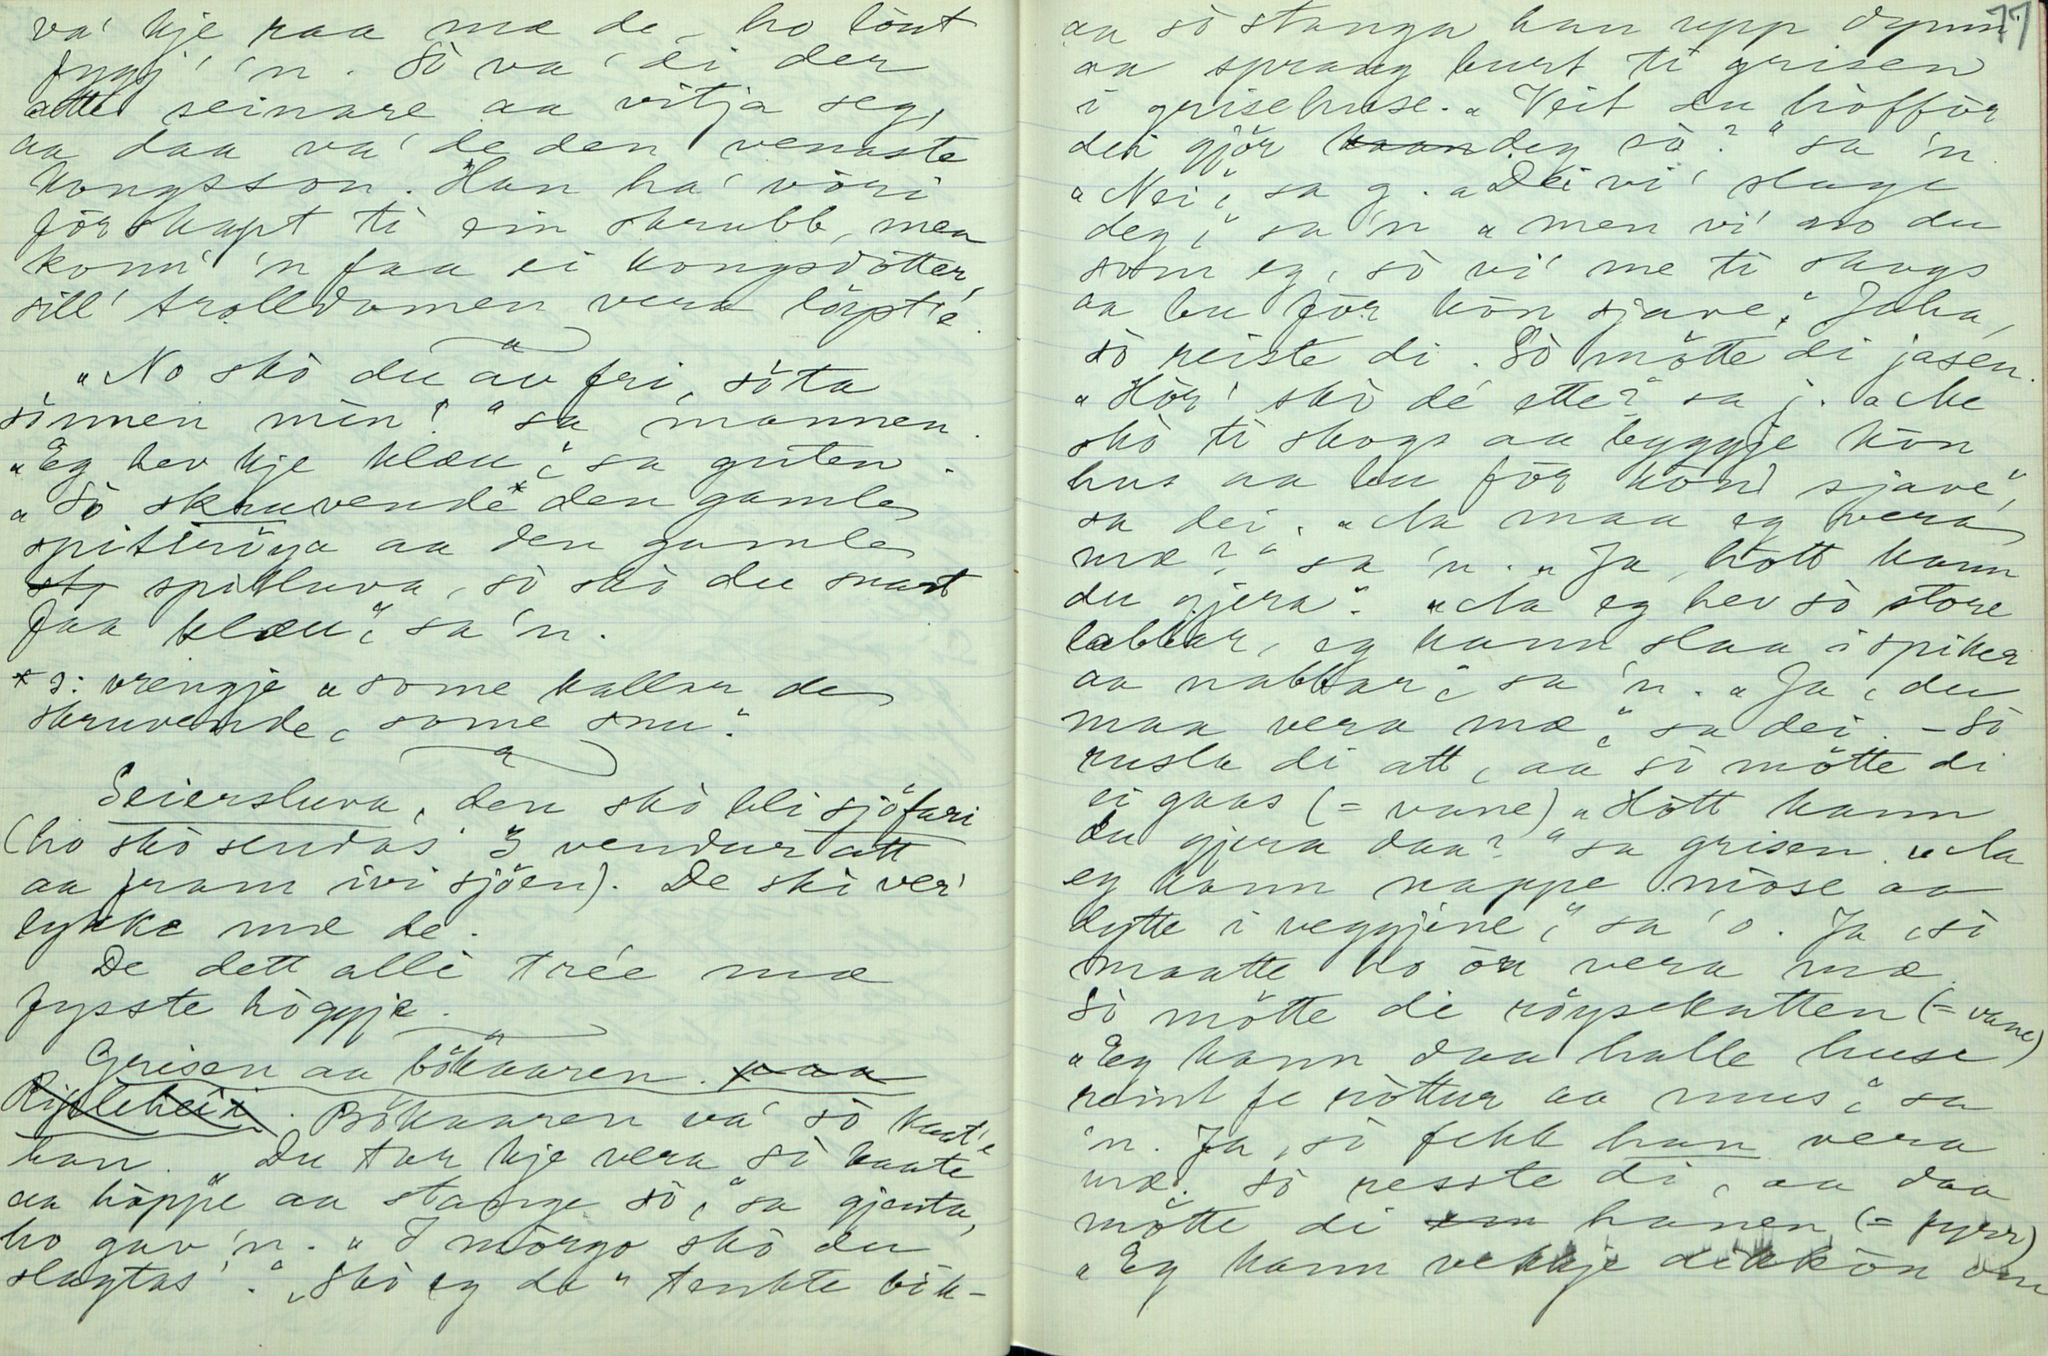 va' kje raa mæ de, ho lönt
fygj' 'n. So va' di der
atte seinare aa vitja seg,
aa daa va' de den venaste
kongsson. Han ha' vöri
förskapt ti ein skrubb, men
konn' 'n faa ei kongsdötter,
sill' trolldomen vera löypt'e.
"No sko du au fri, söta
sonnen min!" sa mannen.
"Eg hev kje klæu", sa guten.
"So skruvende* den gamle
spittröya aa den gamle
spitluva, so sko du snart
faa klæu", sa 'n.
* ɔ: vrengje "some kallar de
skruvende, some snu".
Seiersluva, den sko bli sjöfari
(ho sko sendas' 3 vendur att
aa fram ivi sjöen). De ska ver'
lykke mæ de.
De dett alli tree mæ
fysste högje.
Grisen aa bökaaren. paa
Ripleheii. Bökaaren va' so kaat'e
han. "Du tar kje vera so kaate
aa höppe aa stange so," sa gjenta,
ho gav 'n. "I mörgo sko du
slagtas'." "Sko eg de" tenkte bök-
77
aa so stanga han upp dynni
aa spraang burt ti grisen
i grisehuse. "Veit du höfför
dei gjör deg so?" sa 'n.
"Nei", sa g. "Dei vi' slagte
deg," sa 'n "men vi' no du
som eg, so vi' me ti skogs
aa bu för kön sjave." Jaha,
so reiste di. So mötte di jasen.
"Hör' sko de ette?" sa j. "Me
sko ti skogs aa byggje kön
hus aa bu för kön sjave",
sa dei. "Aa maa eg vera
mæ?" sa 'n. "Ja, hott kann
du gjera". "Aa eg hev so store
labbar, eg kann slaa i spiker
aa nabbar", sa 'n. "Ja, du
maa vera mæ", sa dei. – So
rusla di att, aa so mötte di
ei gaas (= vane) "Hött kann
du gjera daa?" sa grisen. "Aa
eg kann nappe möse aa
dytte i veggjine," sa 'o. Ja, so
maatte ho ou vera mæ.
So mötte di röysekatten (= vane)
"Eg kann daa halle huse
reint fe röttur aa mus", sa
'n. Ja, so fekk han vera
mæ. So resste di, aa daa
mötte di hanen (= fyrr)
"Eg kann vekkje dikkön om